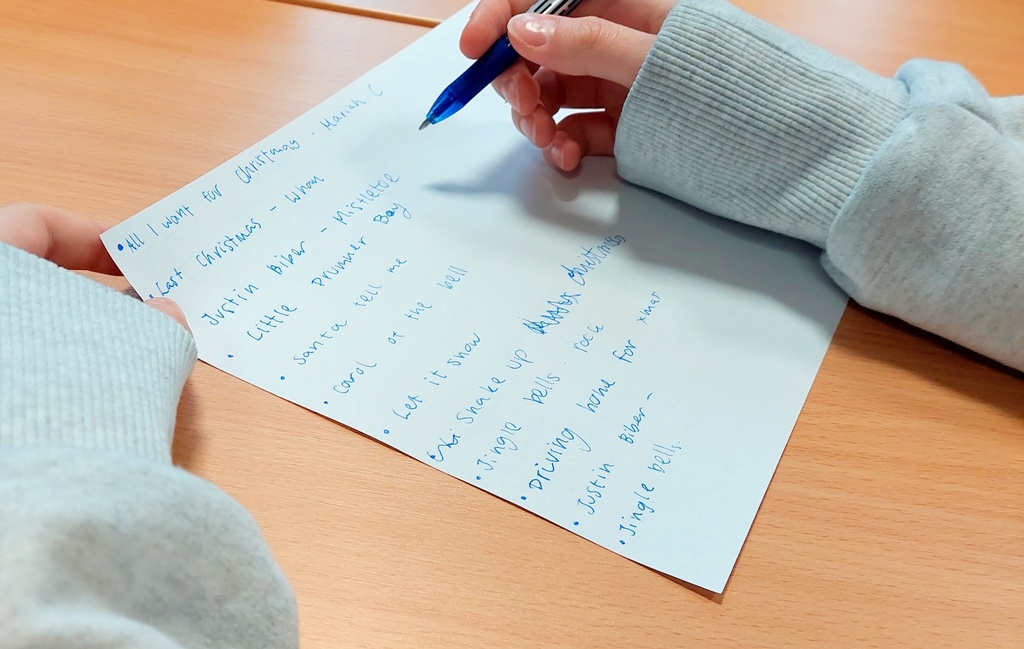 • All I want for Christmas - Mariah C
• Last Christmas - Wham
Justin Biber - Mistletoe
• Little Drummer Boy
• Santa tell me
• Carol of the bell
• Let it snow
Shake up Christmas
• Jingle bells rock
• Driving home for xmas
• Justin Biber -
• Jingle bells.